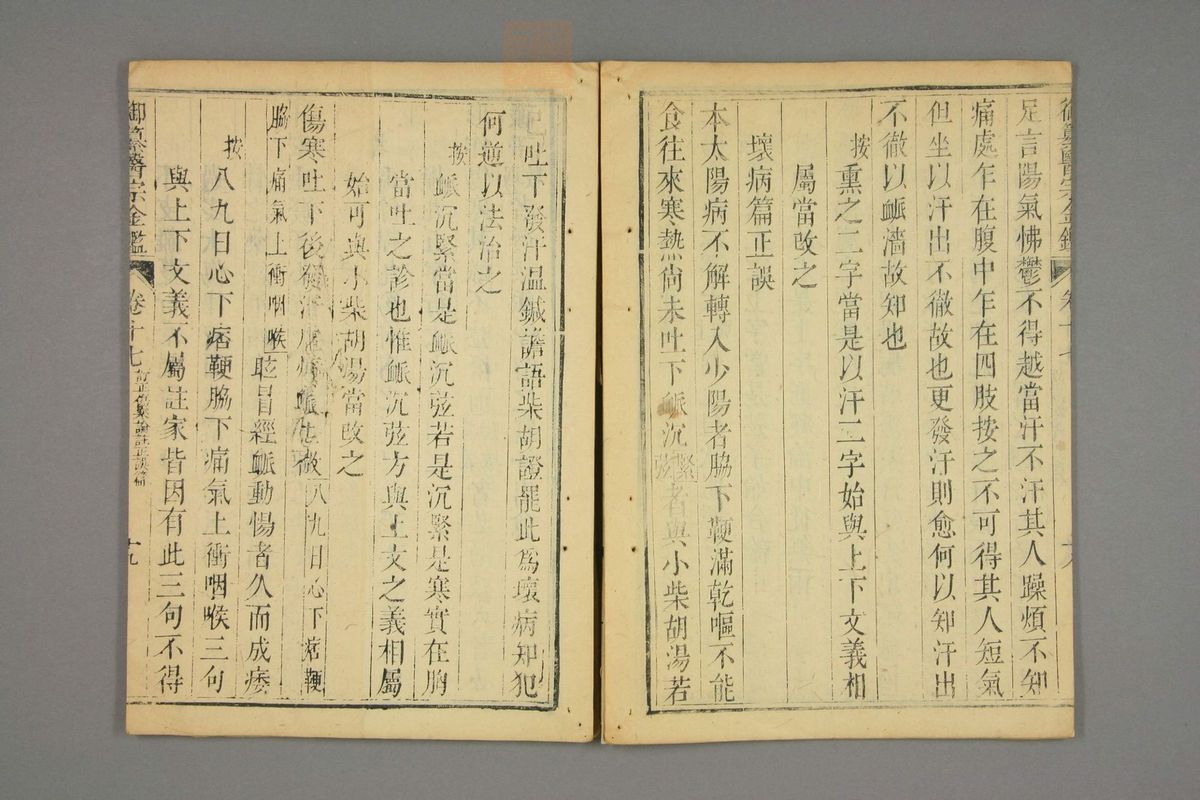 御纂醫宗金鑑 卷十七 十八
足言陽氣怫鬱不得越當汗不汗其人躁煩不知
痛處乍在腹中乍在四肢按之不可得其人短氣
但坐以汗出不徹故也更發汗則愈何以知汗出
不徹以脈濇故知也
按熏之二字當是以汗二字始與上下文義相
屬當改之
壞病篇正誤
本太陽病不解轉入少陽者脇下鞕滿乾嘔不能
食往來寒熱尚未吐下脈沉緊弦者與小柴胡湯若
已吐下發汗溫鍼譫語柴胡證罷此為壞病知犯
何逆以法治之
按脈沉緊當是脈沉弦若是沉緊是寒實在胸
當吐之診也惟脈沉弦方與上文之義相屬
始可與小柴胡湯當改之
傷寒吐下後發汗虛煩脈甚微八九日心下痞鞕
脇下痛氣上衝咽喉眩冒經脈動惕者久而成痿
按八九日心下痞鞕脇下痛氣上衝咽喉三句
與上下文義不屬註家皆因有此三句不得
御纂醫宗金鑑 卷十七 訂正傷寒論註正誤篇 十九